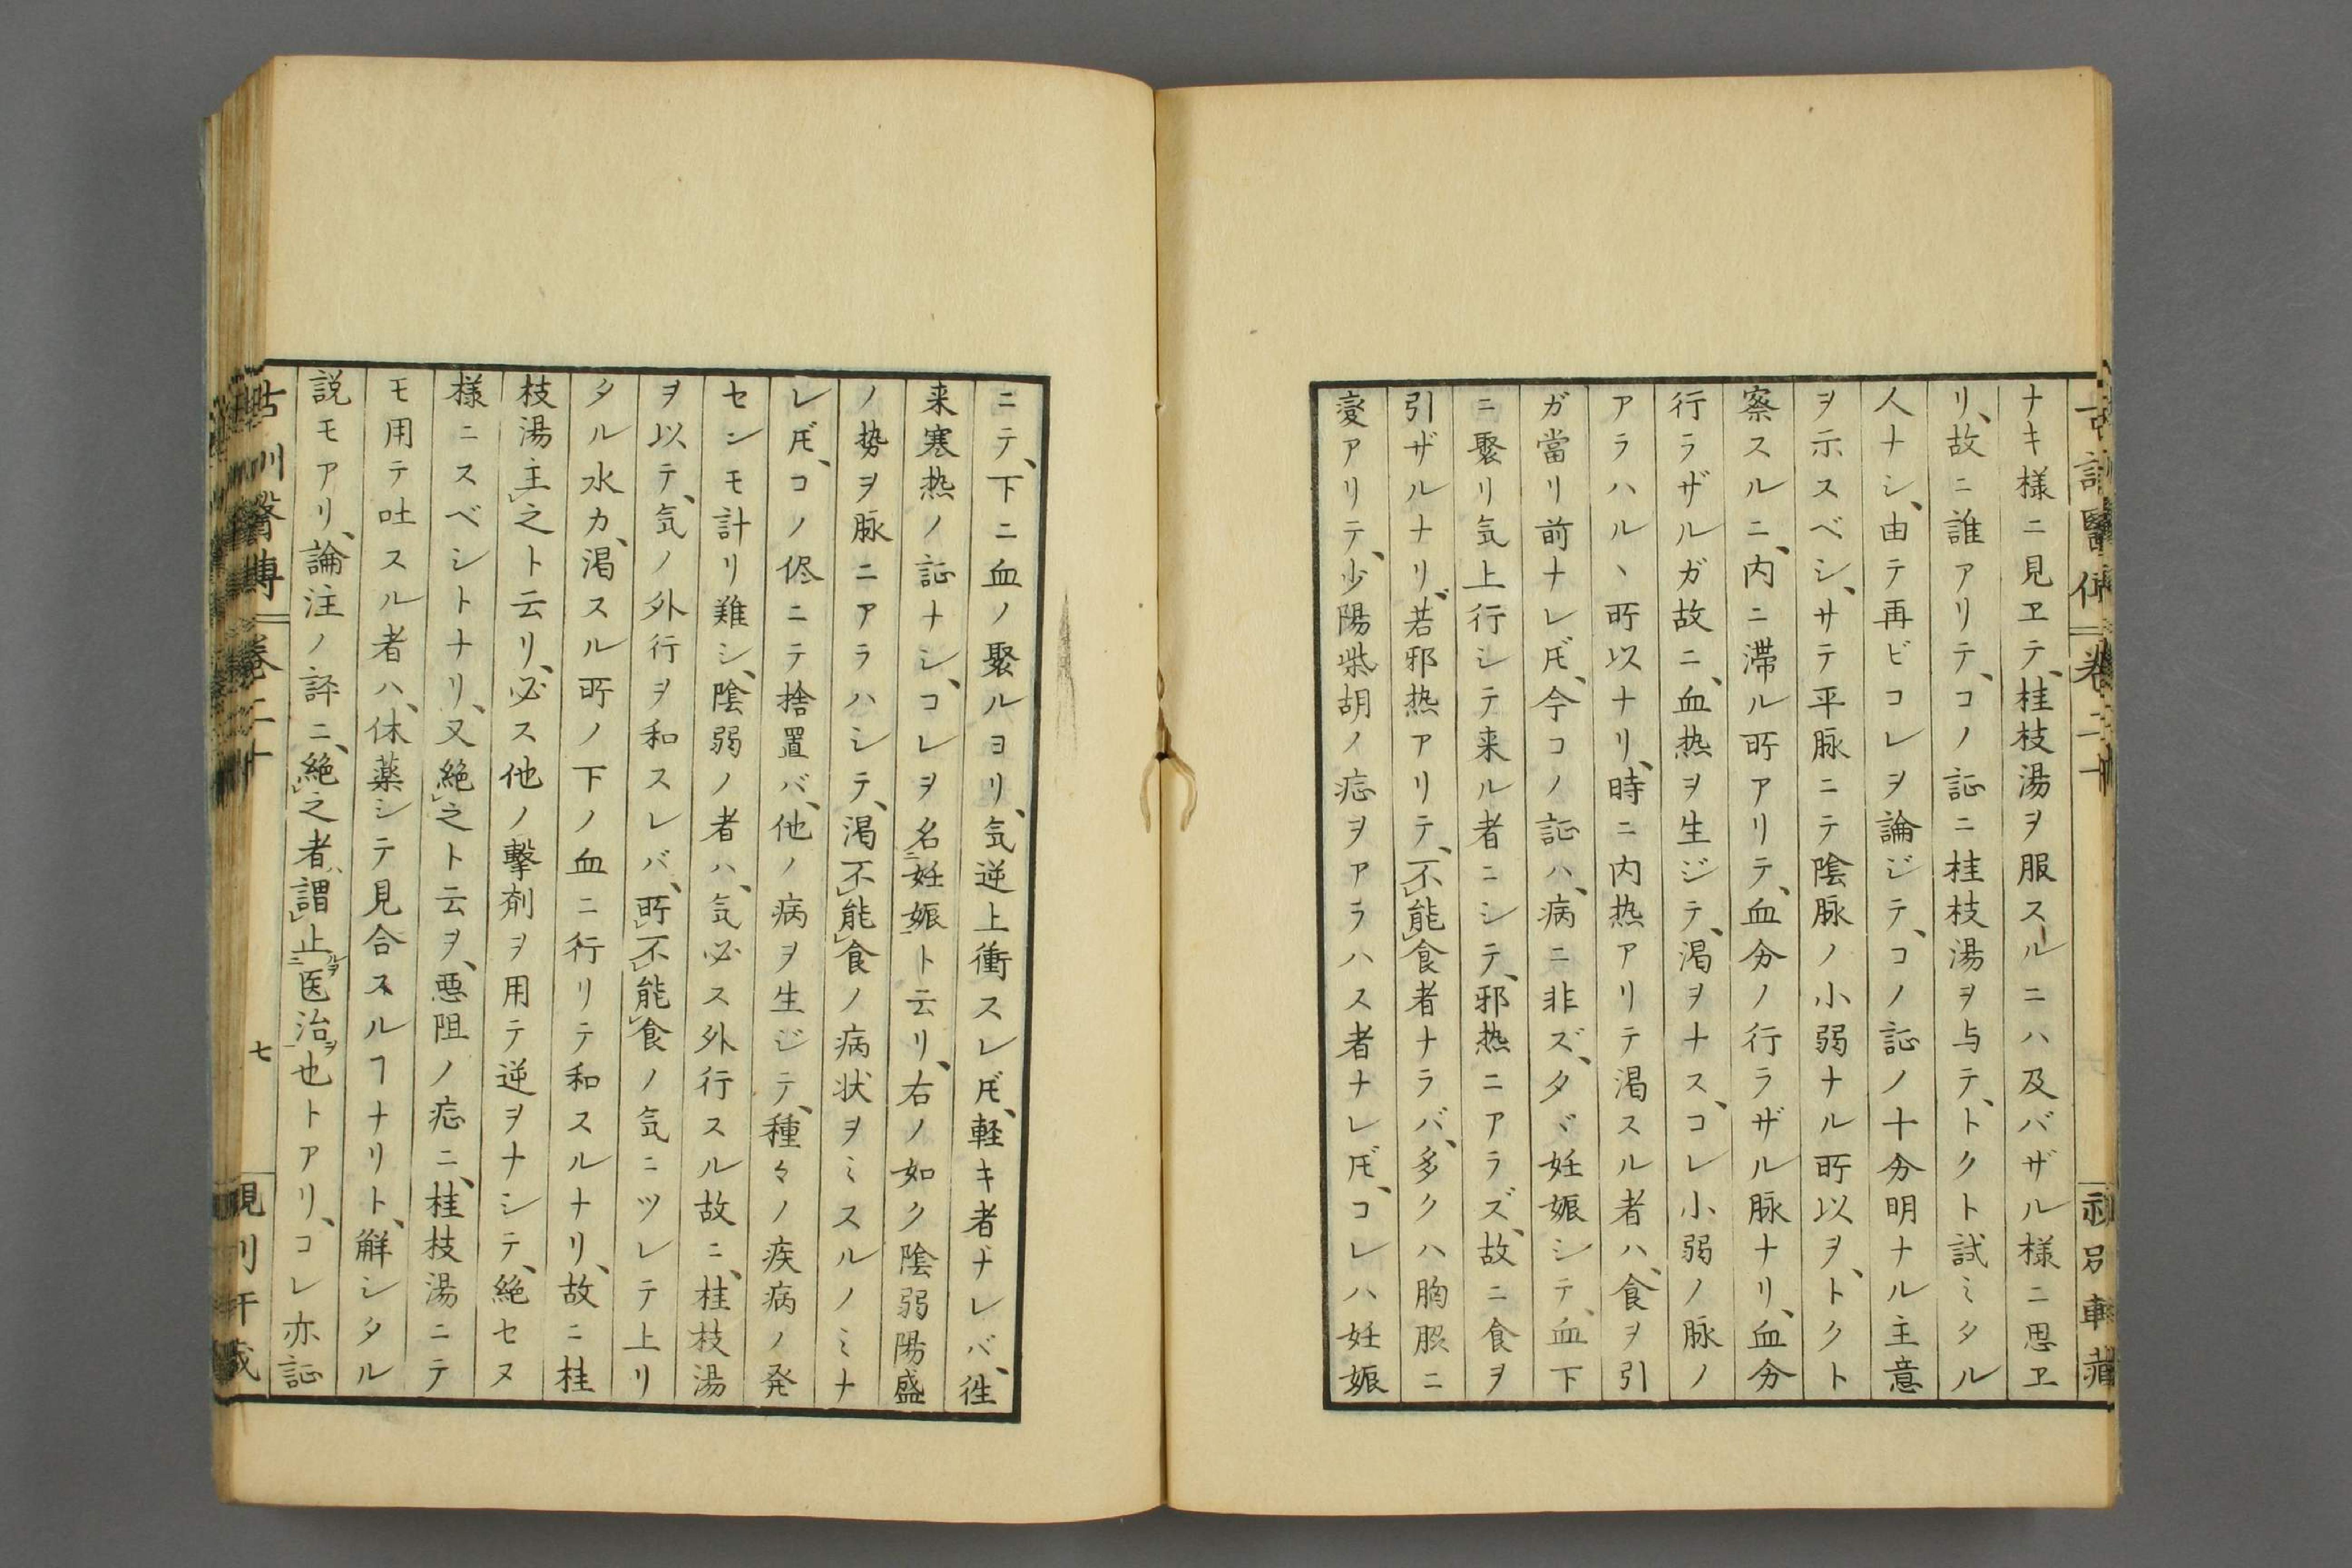 ナキ様ニ見ヱテ、桂枝湯ヲ服スルニハ及バザル様ニ思ヱ
リ、故ニ誰アリテ、コノ証ニ桂枝湯ヲ与テ、トクト試ミタル
人ナシ、由テ再ビコレヲ論ジテ、コノ証ノ十分明ナル主意
ヲ示スベシ、サテ平脉ニテ陰脉ノ小弱ナル所以ヲ、トクト
察スルニ、内ニ滞ル所アリテ、血分ノ行ラザル脉ナリ、血分
行ラザルガ故ニ、血热ヲ生ジテ、渇ヲナス、コレ小弱ノ脉ノ
アラハルヽ所以ナリ、時ニ内热アリテ渇スル者ハ、食ヲ引
ガ當リ前ナレ𪜈、今コノ証ハ、病ニ非ズ、タヾ妊娠シテ、血下
ニ聚リ気上行シテ来ル者ニシテ、邪热ニアラズ、故ニ食ヲ
引ザルナリ、若邪热アリテ、不能食者ナラバ、多クハ胸脇ニ
変アリテ、少陽柴胡ノ症ヲアラハス者ナレ𪜈、コレハ妊娠
ニテ、下ニ血ノ聚ルヨリ、気逆上衝スレ𪜈、軽キ者ナレバ、徃
来寒热ノ証ナシ、コレヲ名妊娠ト云リ、右ノ如ク陰弱陽盛
ノ势ヲ脉ニアラハシテ、渇不能食ノ病状ヲミスルノミナ
レ𪜈、コノ侭ニテ捨置バ、他ノ病ヲ生ジテ、種々ノ疾病ノ発
センモ計リ難シ、陰弱ノ者ハ、気必ス外行スル故ニ、桂枝湯
ヲ以テ、気ノ外行ヲ和スレバ、所不能食ノ気ニツレテ上リ
タル水カ、渇スル所ノ下ノ血ニ行リテ和スルナリ、故ニ桂
枝湯主之ト云リ、必ス他ノ撃剤ヲ用テ逆ヲナシテ、絶セヌ
様ニスベシトナリ、又絶之ト云ヲ、悪阻ノ症ニ、桂枝湯ニテ
モ用テ吐スル者ハ、休薬シテ見合スルヿナリト、解シタル
説モアリ、論注ノ評ニ、絶之者ハ謂止ルヲ医治ヲ也トアリ、コレ亦証
七